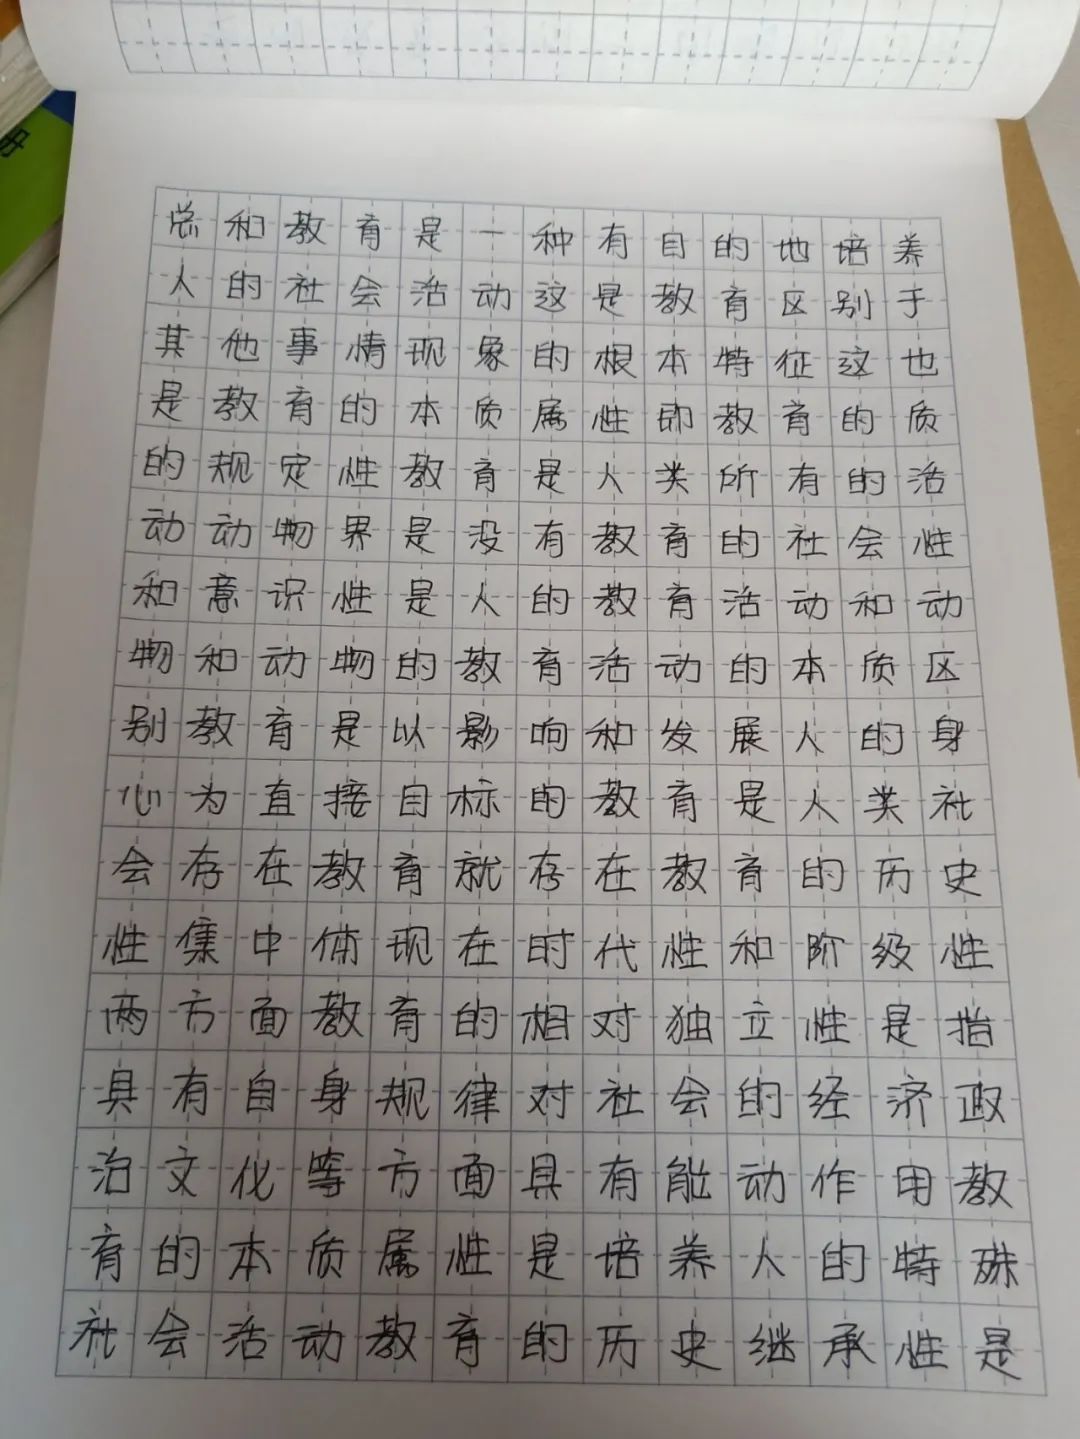 总和教育是一种有目的地培养
人的社会活动这是教育区别于
其他事情现象的根本特征这也
是教育的本质属性即教育的质
的规定性教育是人类所有的活
动动物界是没有教育的社会性
和意识性是人的教育活动和动
物和动物的教育活动的本质区
别教育是以影响和发展人的身
心为直接目标的教育是人类社
会存在教育就存在教育的历史
性集中体现在时代性和阶级性
两方面教育的相对独立性是指
具有自身规律对社会的经济政
治文化等方面具有能动作用教
育的本质属性是培养人的特殊
社会活动教育的历史继承性是